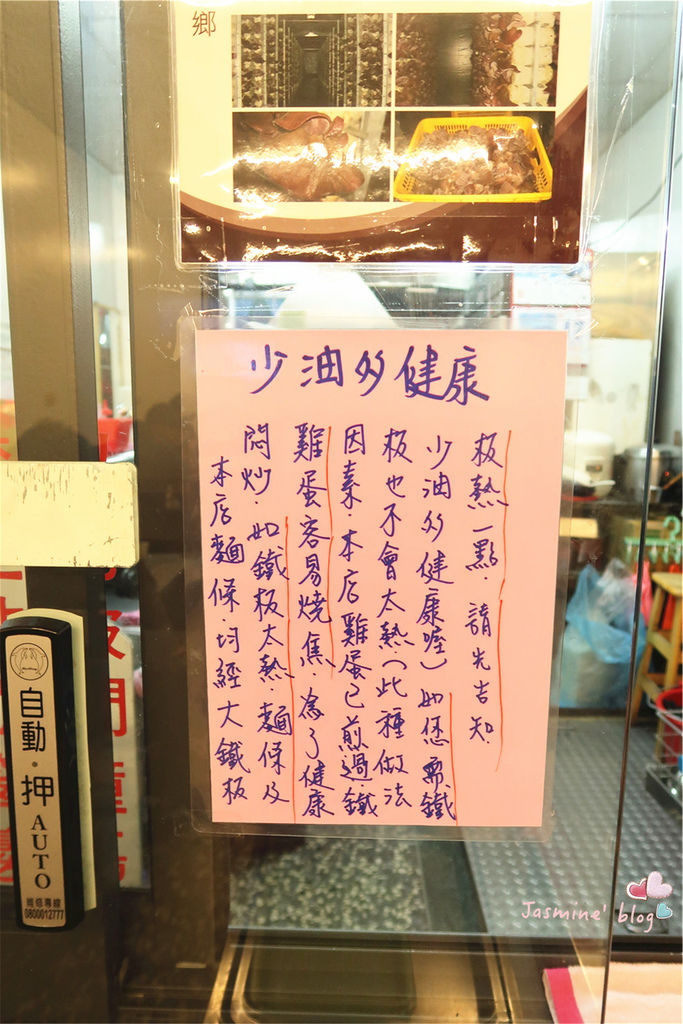 鄉
少油多健康
本店麵條.均經大鐵板
悶炒.如鐵板太熱.麵條及
雞蛋容易燒焦.為了健康
因素.本店雞蛋已煎過.鐵
板也不會太熱(此種做法
少油多健康喔)如您需鐵
板熱一點.請先告知
自動·押
AUTO
維修專線
0800012777
Jasmine' blog